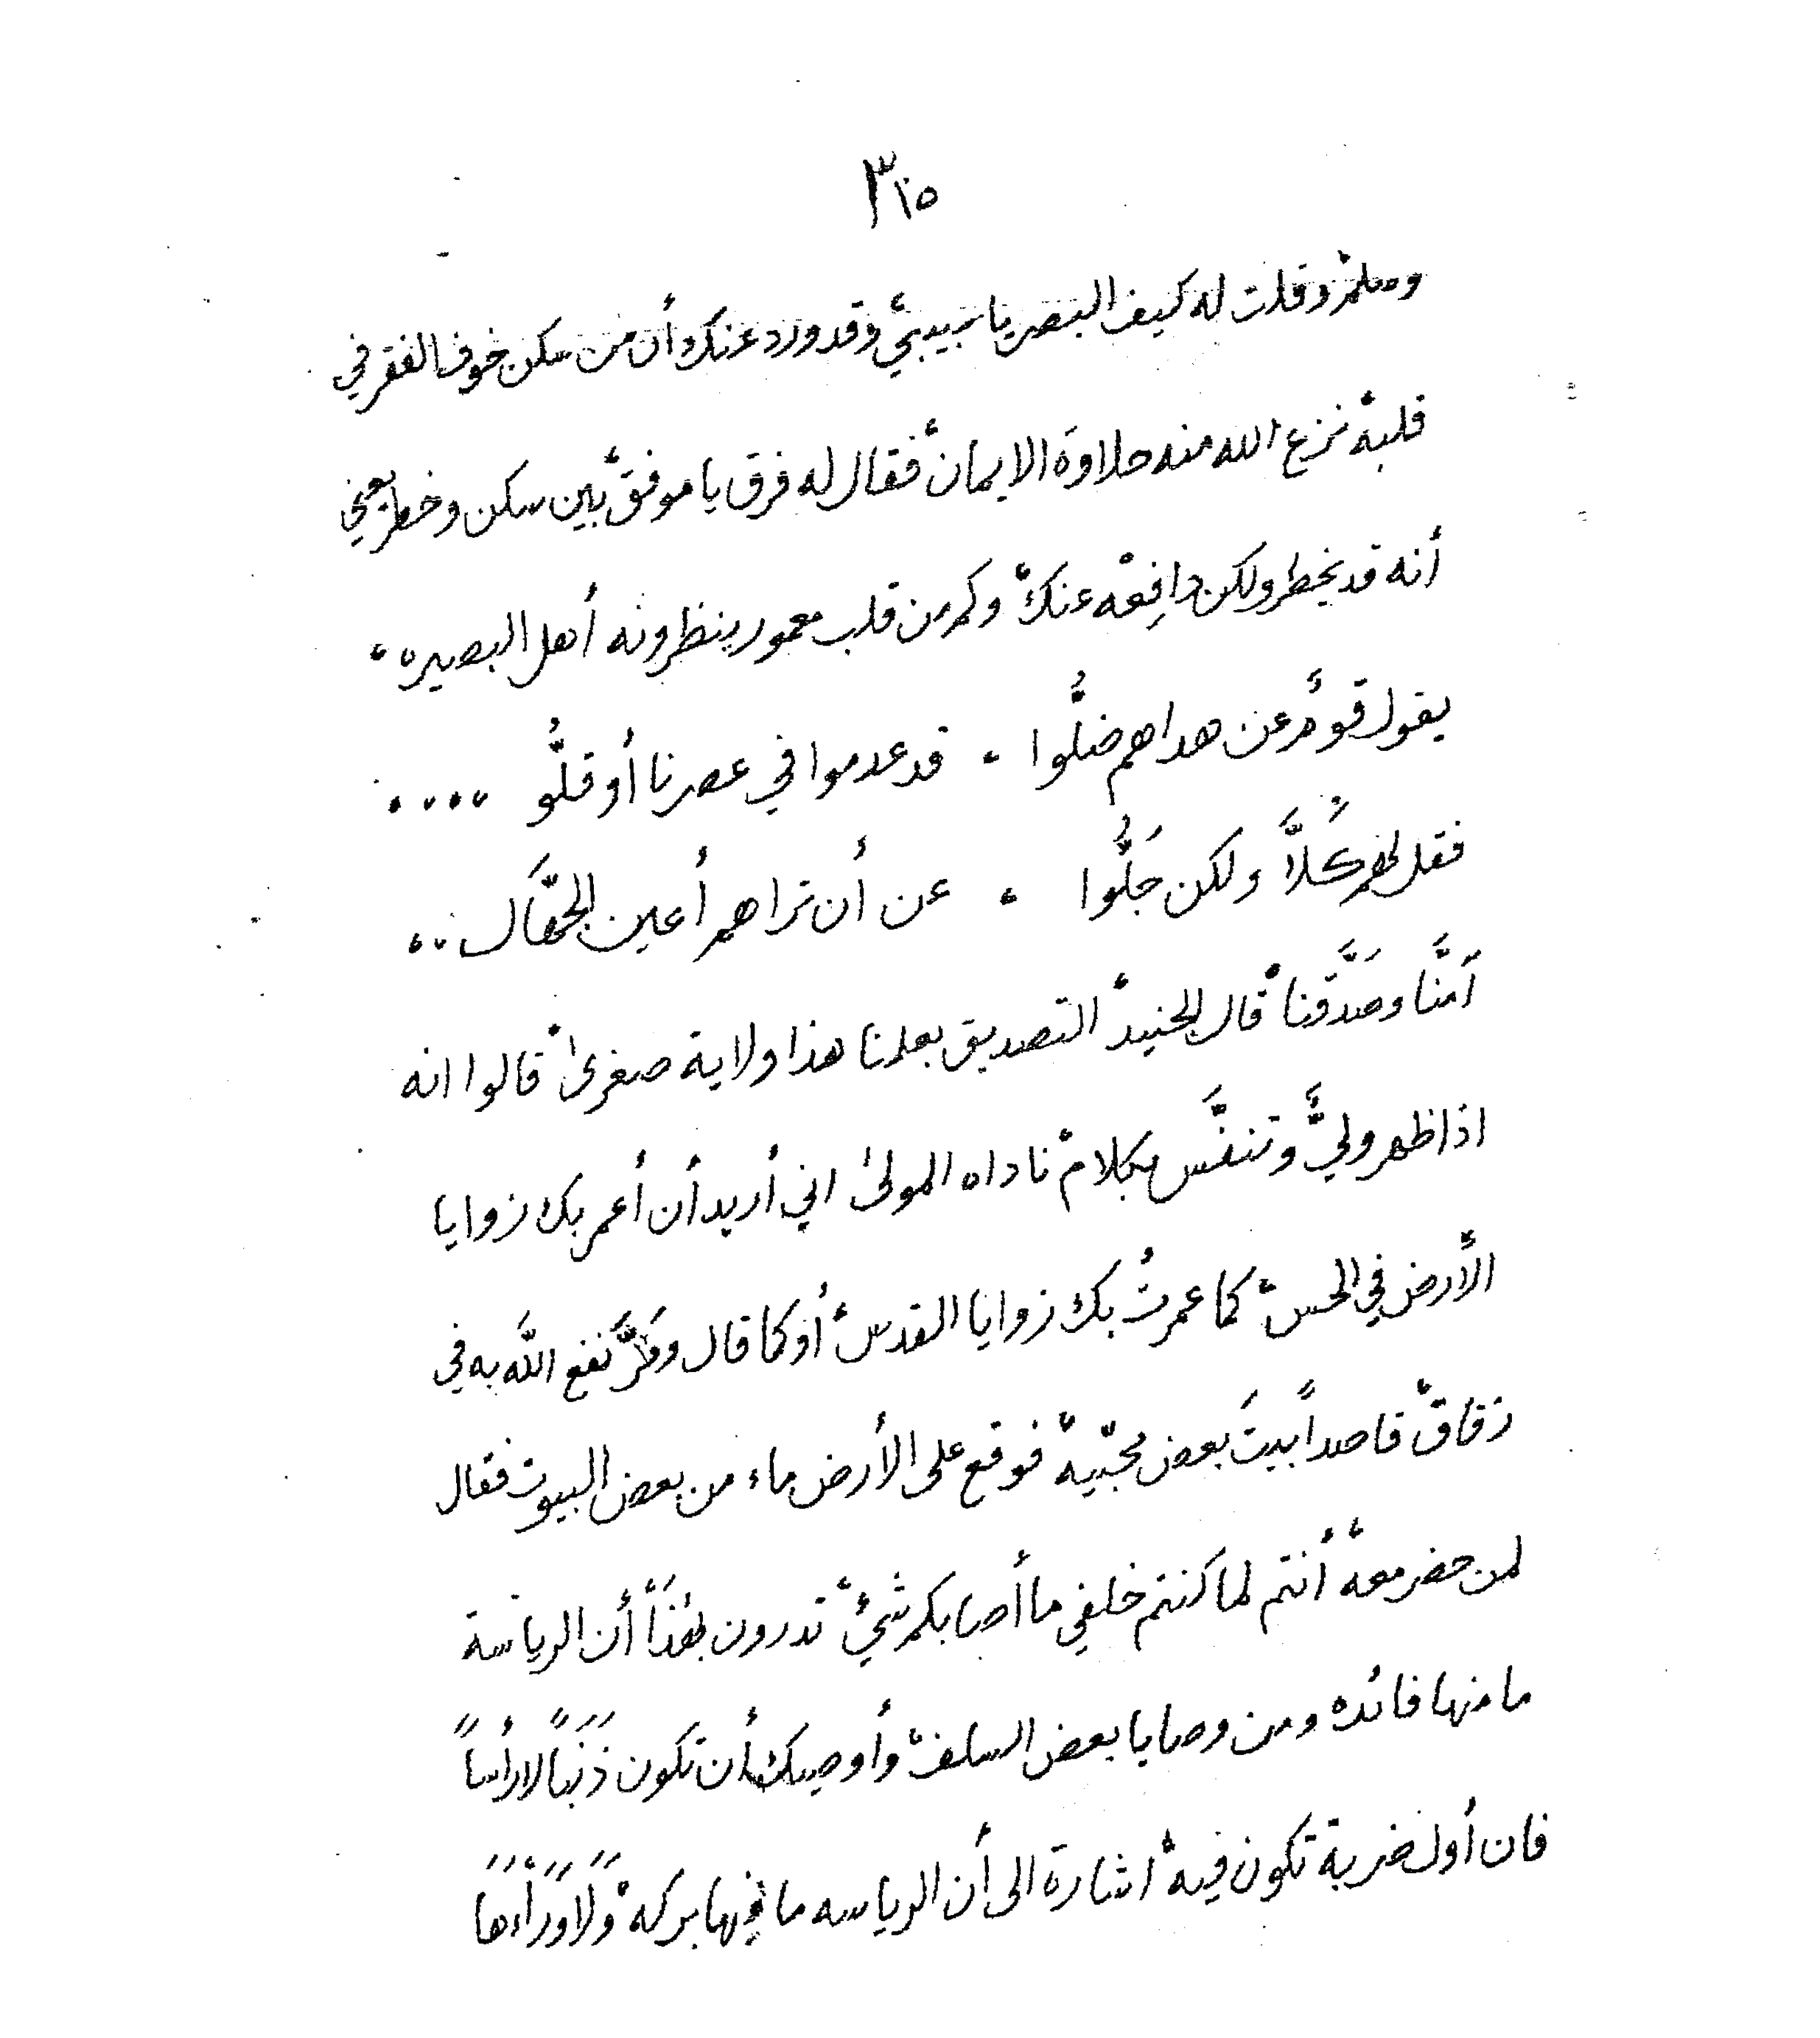 ٣١٥
وسلم وقلت له كيف البصر يا حبيبي وقد ورد عنك أن من سكن خوف الفقر في
قلبه نزع الله منه حلاوة الايمان فقال له فرق يا موفق بين سكن وخطر يعني
أنه قد يخطر ولكن دافعه عنك وكم من قلب معمور ينظرونه أهل البصيره ،
يقول قومٌ عن هداهم ضلُّوا ، قد عدموا في عصرنا أو قلُّو ،،،،
فقل لهم كَلاَّ ولكن جَلُّوا ، عن أن تراهم أعين الجهَّال ،،
آمنَّا وصَدَّقنا قال الجنيد التصديق بعلمنا هذا ولاية صغرى قالوا انه
اذا ظهر وليٌّ وتنفَّس بكلام ناداه المولى اني أريد أن أعمر بك زوايا
الأرض في الحس كما عمرتُ بك زوايا القدس أو كما قال ومَرَّ نفع الله به في
زقاق قاصداً بيتَ بعض محبّيه فوقع على الأرض ماء من بعض البيوت فقال
لمن حضر معه أنتم لما كنتم خلفي ما أصابكم شيْ تدرون بهذا أن الرياسة
ما منها فائده ومن وصايا بعض السلف وأوصيك أن تكون ذَنَباً لا رأساً
فان أول ضربة تكون فيه اشارة الى أن الرياسه ما فيها بركه وَلَا وَرَاءَهَا